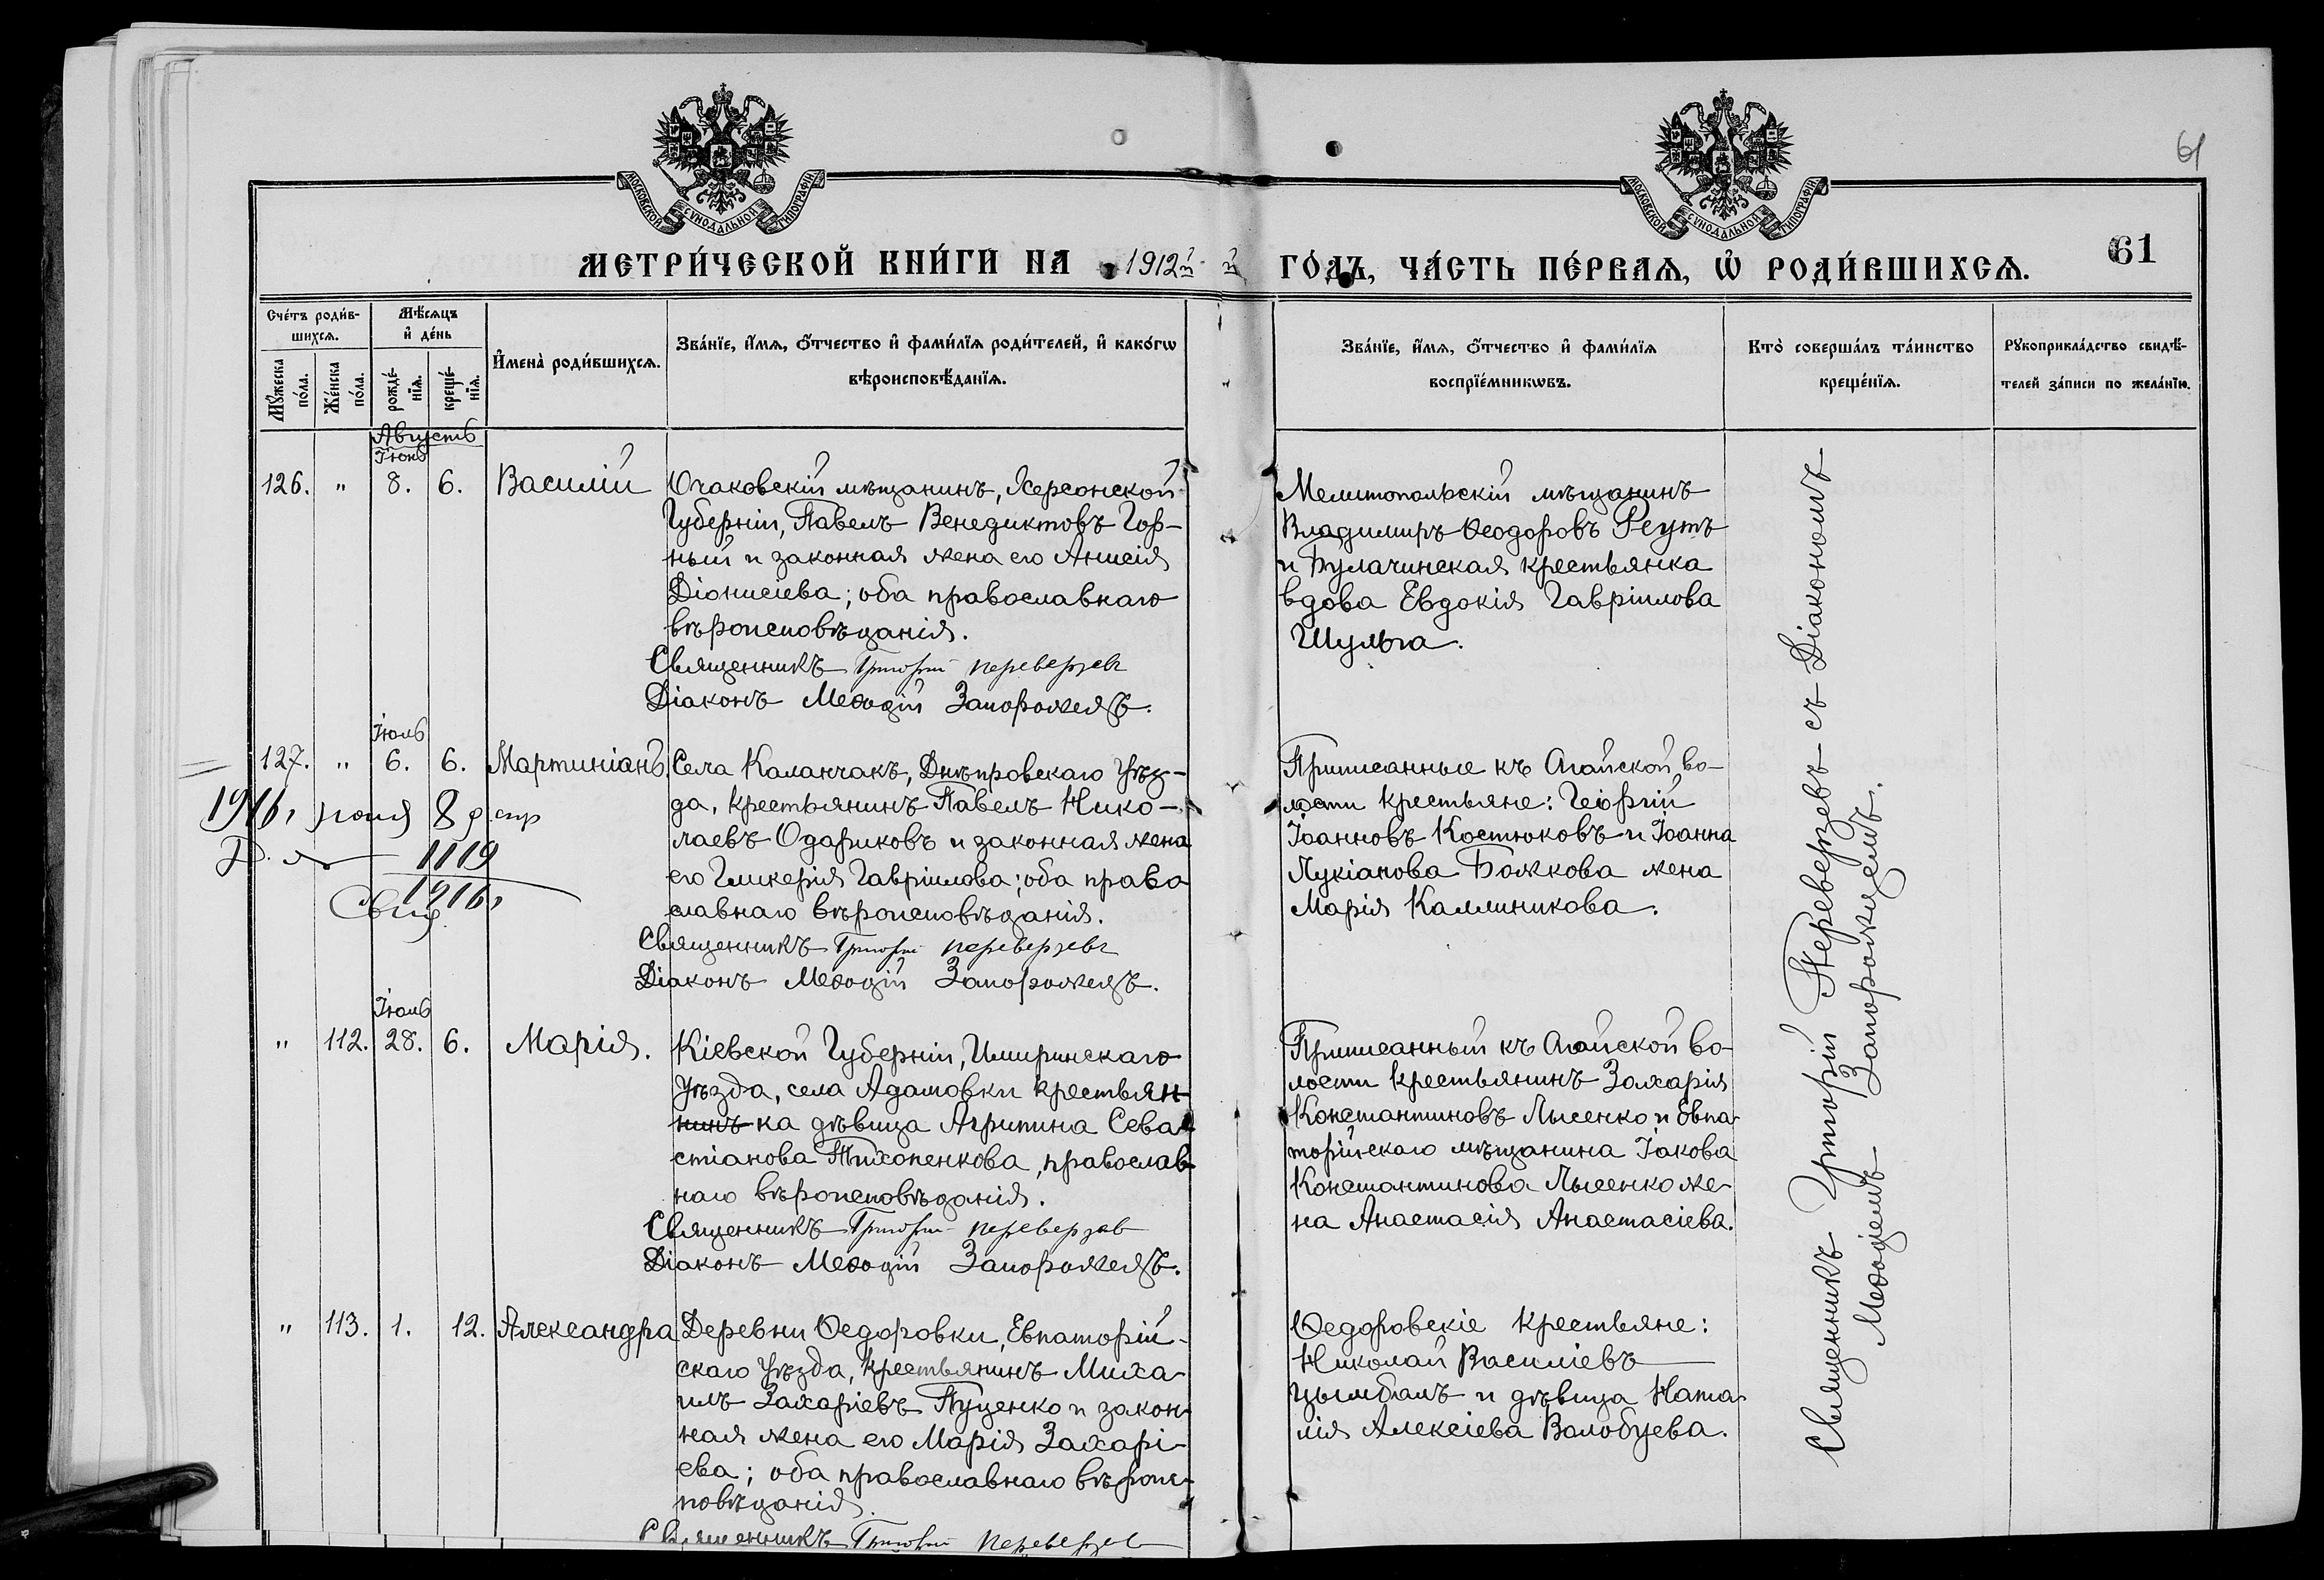 61
МОСКОВСКОЙ СѴНОДАЛЬНОЙ ТИПОГРАФІИ
МОСКОВСКОЙ СѴНОДАЛЬНОЙ ТИПОГРАФІИ
МЕТРИ́ЧЕСКОЙ КНИ́ГИ НА 1912й й ГО́ДЪ, ЧА́СТЬ ПЕ́РВАѦ, Ѡ҆ РОДИ́ВШИХСѦ.
61
Сче́тъ роди́в-
шихсѧ.
Мꙋ́жеска по́ла.
Же́нска по́ла.
Мѣ́сѧцъ
и҆ де́нь
рожде́-
нїѧ.
креще́-
нїѧ.
И҆мена̀ роди́вшихсѧ.
Зва́нїе, и҆́мѧ, ѻ҆́тчество и҆ фами́лїѧ роди́телей, и҆ како́гѡ
вѣроисповѣ́данїѧ.
Зва́нїе, и҆́мѧ, ѻ҆́тчество и҆ фами́лїѧ
воспрїе́мникѡвъ.
Кто̀ соверша́лъ та́инство
креще́нїѧ.
Рꙋкоприкла́дство свидѣ́-
телей за́писи по жела́нїю.
Августъ
Іюнь
126. " 8. 6. Василій
Очаковскій мѣщанинъ, Херсонской
Губерніи, Павелъ Венедиктовъ Гор-
ный и законная жена его Анисія
Діонисіева; оба православнаго
вѣроисповѣданія.
Священникъ Григорій Переверзевъ
Діаконъ Меѳодій Запорожецъ.
Мелитопольскій мѣщанинъ
Владимиръ Ѳеодоровъ Реутъ
и Булачинская крестьянка
вдова Евдокія Гавріилова
Шульга.
Іюль
127. " 6. 6. Мартиніанъ.
Села Каланчакъ, Днѣпровскаго Уѣз-
да, крестьянинъ Павелъ Нико-
лаевъ Одариковъ и законная жена
его Гликерія Гавріилова; оба право
славнаго вѣроисповѣданія.
Священникъ Григорій Переверзевъ
Діаконъ Меѳодій Запорожецъ.
1916г. іюня 8 д.
1119
1916г.
Приписанные къ Агайской во-
лости крестьяне: Георгій
Іоанновъ Костюковъ и Іоанна
Лукіанова Божкова жена
Марія Каллиникова.
Іюль
" 112. 28. 6. Марія.
Кіевской Губерніи, Чигиринскаго
Уѣзда, села Адамовки крестьян
нинъ ка дѣвица Агрипина Сева-
стіанова Тихоненкова, православ-
наго вѣроисповѣданія.
Священникъ Григорій Переверзев
Діаконъ Меѳодій Запорожецъ.
Приписанный къ Агайской во-
лости крестьянинъ Захарія
Константиновъ Лысенко и Евпа-
торійскаго мѣщанина Іакова
Константинова Лысенко же-
на Анастасія Анастасіева.
" 113. 1. 12. Александра
Деревни Ѳедоровки, Евпаторій-
скаго Уѣзда, крестьянинъ Миха-
илъ Захаріевъ Пуценко и закон-
ная жена его Марія Захарі-
ева; оба православнаго вѣроис-
повѣданія.
Священникъ Григорій Переверзев
Ѳедоровскіе крестьяне:
Николай Василіевъ
Цымбалъ и дѣвица Ната-
лія Алексіева Волобуева.
Священникъ Григорій Переверзевъ съ Діакономъ
Меѳодіемъ Запорожцемъ.